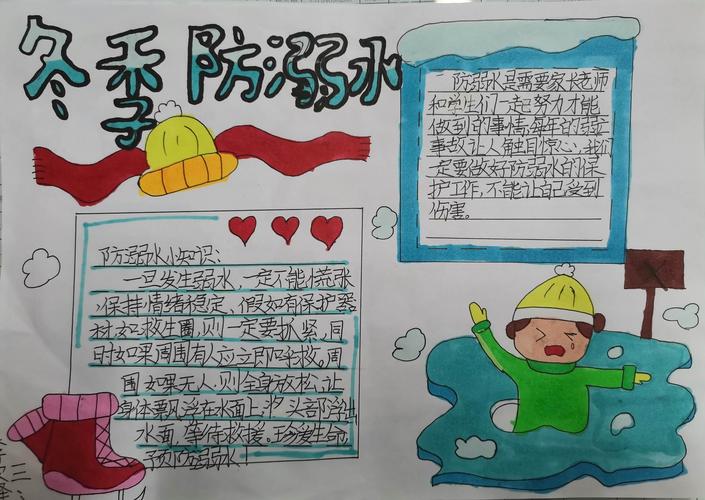 冬季防溺水
防溺水是需要家长老师
和学生们一起努力才能
做到的事情,每年的溺亡
事故让人触目惊心,我们一
定要做好防溺水的保
护工作,不能让自己受到
伤害。
防溺水小知识:
一旦发生溺水,一定不能慌张
保持情绪稳定,假如有保护器
材如救生圈,则一定要抓紧,同
时如果周围有人应立即呼救。周
围如果无人,则全身放松,让
身体漂浮在水面上,将头部浮出
水面,等待救援。珍爱生命
预防溺水!
三